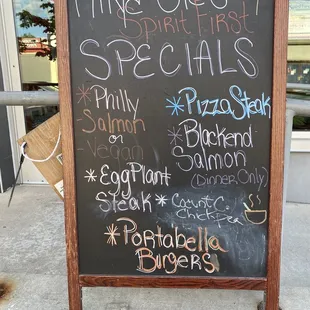 Spirit First
SPECIALS
* Philly
Salmon
or
Vegan
* Pizza Steak
* Blackend
Salmon
(Dinner Only)
* Egg Plant
Steak *
Chick Pea
* Portabella
Burgers